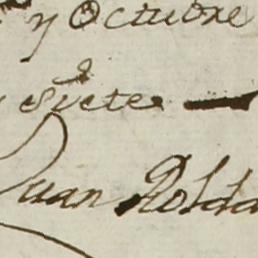 y Octubre
y siete
Juan Rolda